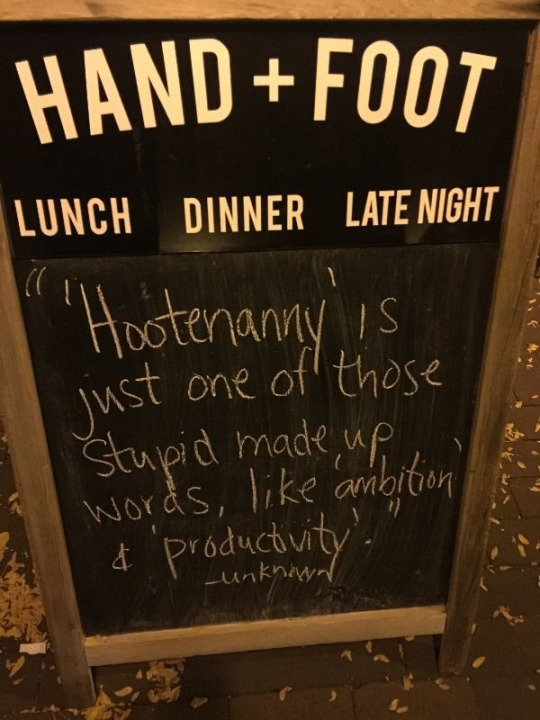 HAND + FOOT
LUNCH DINNER LATE NIGHT
"'Hootenanny' is
just one of those
stupid made up
words, like 'ambition'
& 'productivity'."
-unknown